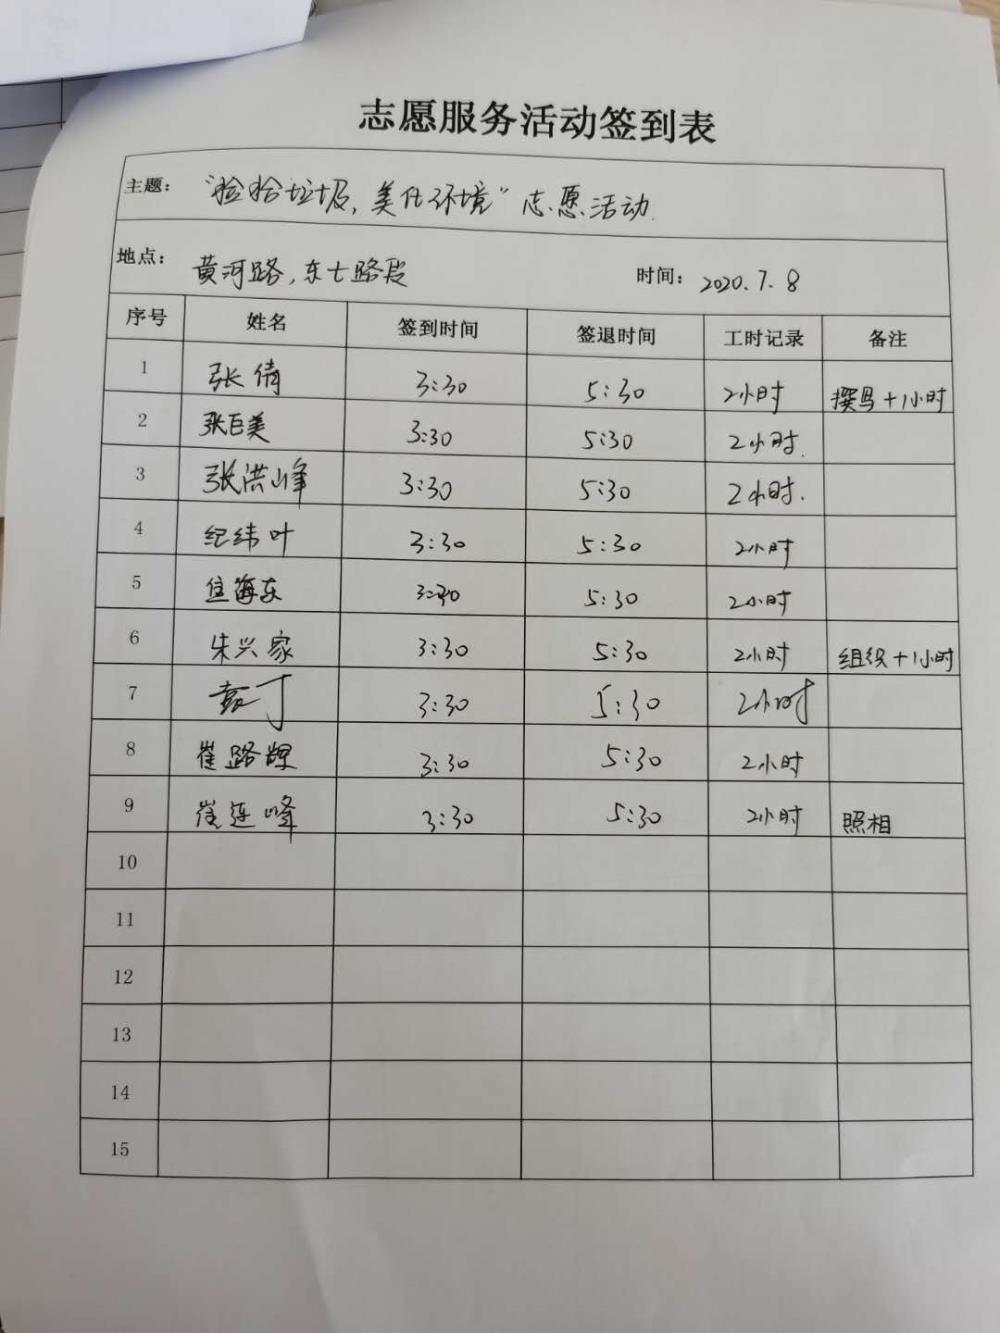 志愿服务活动签到表
主题： “捡拾垃圾，美化环境”志愿活动.
地点： 黄河路，东七路段 时间： 2020.7.8
序号 姓名 签到时间 签退时间 工时记录 备注
1 张倩 3:30 5:30 2小时 撰写+1小时
2 张巨美 3:30 5:30 2小时.
3 张洪峰 3:30 5:30 2小时.
4 纪纬叶 3:30 5:30 2小时
5 海东 3:30 5:30 2小时
6 朱兴家 3:30 5:30 2小时 组织+1小时
7 丁 3:30 5:30 2小时
8 崔路辉 3:30 5:30 2小时
9 崔连峰 3:30 5:30 2小时 照相
10
11
12
13
14
15